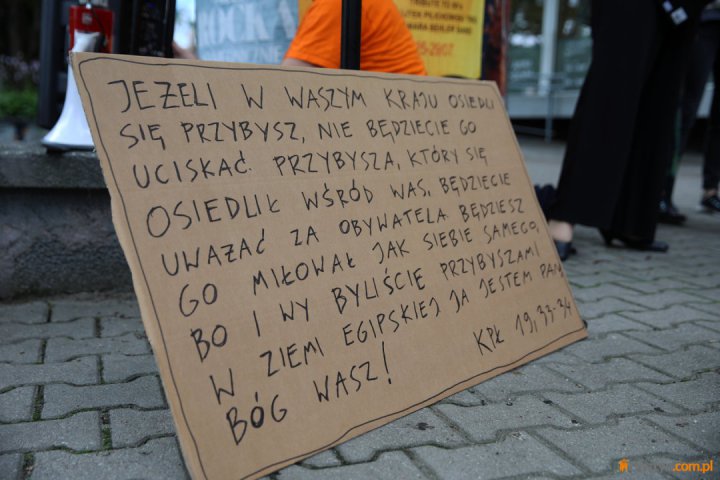 JEŻELI W WASZYM KRAJU OSIEDLI
SIĘ PRZYBYSZ, NIE BĘDZIECIE GO
UCISKAĆ. PRZYBYSZA, KTÓRY SIĘ
OSIEDLIŁ WŚRÓD WAS, BĘDZIECIE
UWAŻAĆ ZA OBYWATELA. BĘDZIESZ
GO MIŁOWAŁ JAK SIEBIE SAMEGO,
BO I WY BYLIŚCIE PRZYBYSZAMI
W ZIEMI EGIPSKIEJ JA JESTEM PAN,
BÓG WASZ!
KPŁ 19, 33-34
.com.pl